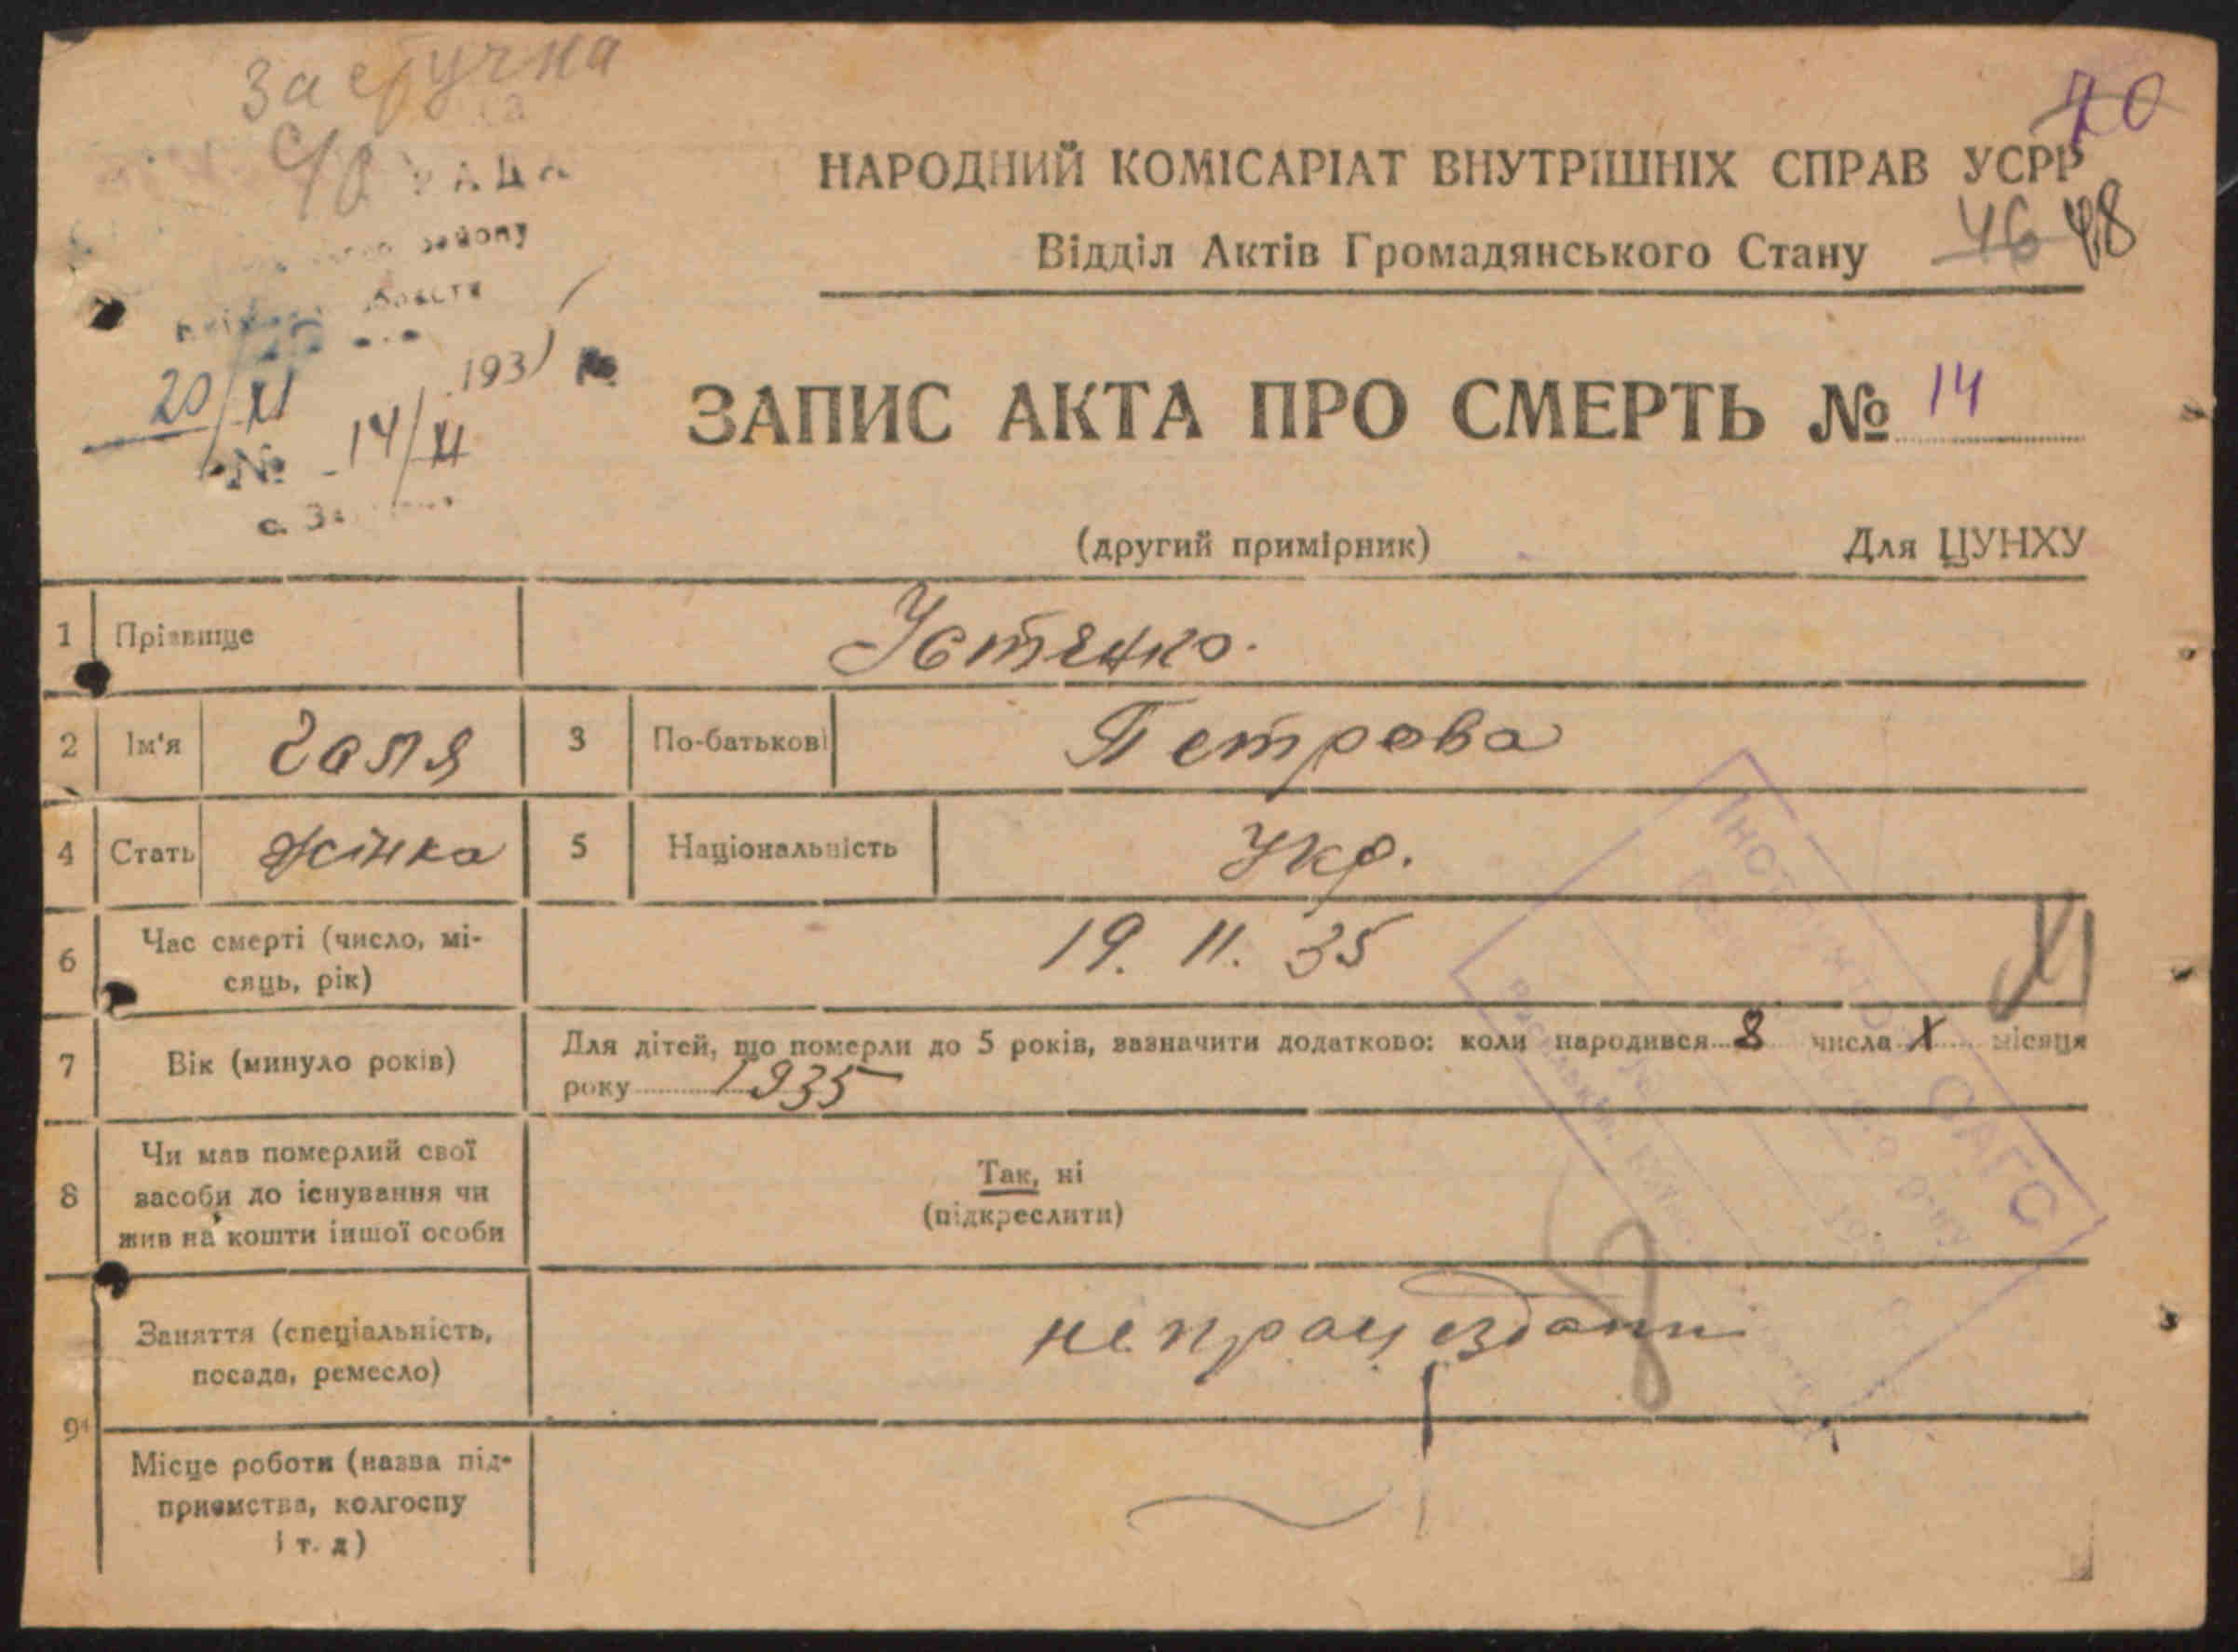 70
НАРОДНИЙ КОМІСАРІАТ ВНУТРІШНІХ СПРАВ УСРР
Відділ Актів Громадянського Стану
46 48
району
193
20/XI
№ 14/XI
с. За
ЗАПИС АКТА ПРО СМЕРТЬ № 14
(другий примірник) Для ЦУНХУ
1 Прізвище Устенко.
2 Ім'я Галя 3 По-батькові Петрова
4 Стать жінка 5 Національність Укр.
6 Час смерті (число, мі-
сяць, рік) 19. 11. 35
XI
7 Вік (минуло років) Для дітей, що померли до 5 років, зазначити додатково: коли народився 8 числа X місяця
року 1935
8 Чи мав померлий свої
засоби до існування чи
жив на кошти іншої особи
Так, ні
(підкреслити)
9 Заняття (спеціальність,
посада, ремесло)
Місце роботи (назва під-
приємства, колгоспу
і т. д)
ЗАГС